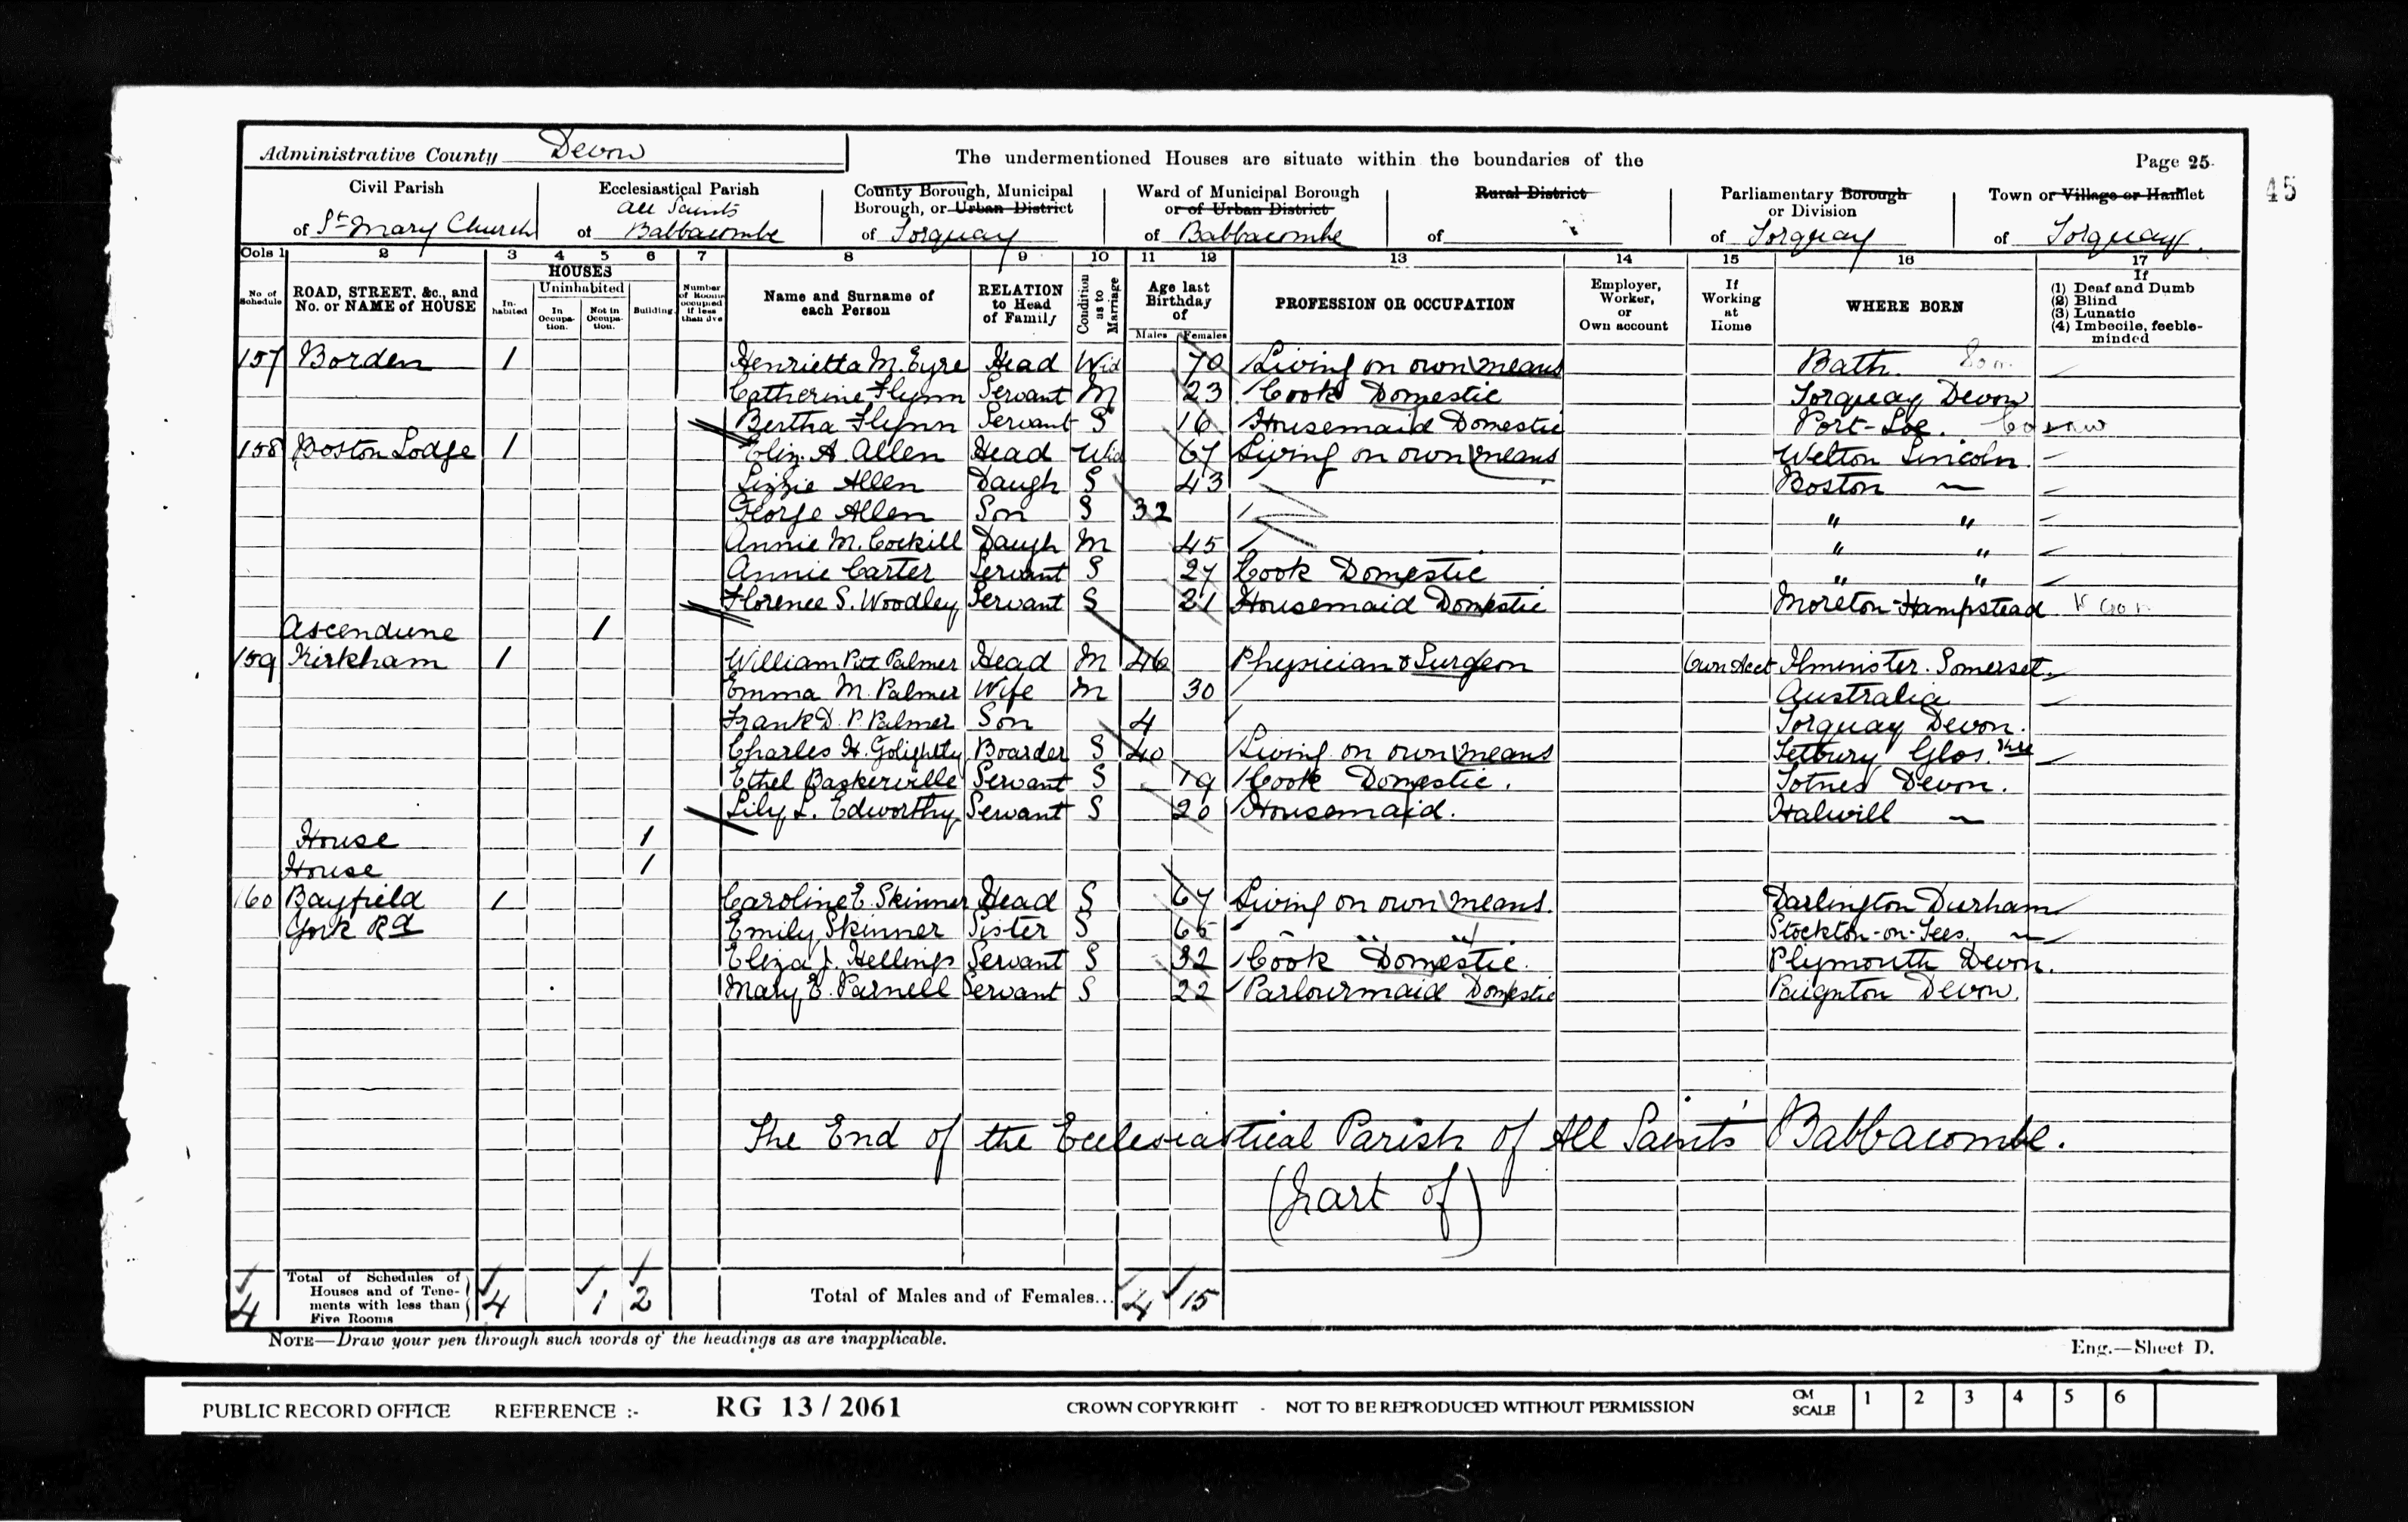 Administrative County Devon
The undermentioned Houses are situate within the boundaries of the
Page 25.
45
Civil Parish of St Mary Church
Ecclesiastical Parish of All Saints Babbacombe
County Borough, Municipal Borough, or Urban District of Torquay
Ward of Municipal Borough or of Urban District of Babbacombe
Rural District of
Parliamentary Borough or Division of Torquay
Town or Village or Hamlet of Torquay
Cols 1 2 3 4 5 6 7 8 9 10 11 12 13 14 15 16 17
No. of Schedule
ROAD, STREET, &c., and No. or NAME of HOUSE
HOUSES
In-habited
Uninhabited
In Occupa-tion.
Not in Occupa-tion.
Building.
Number of Rooms occupied if less than five
Name and Surname of each Person
RELATION to Head of Family
Condition as to Marriage
Age last Birthday of
Males Females
PROFESSION OR OCCUPATION
Employer, Worker, or Own account
If Working at Home
WHERE BORN
If (1) Deaf and Dumb (2) Blind (3) Lunatic (4) Imbecile, feeble-minded
157 Borden 1 Henrietta M. Eyre Head Wid 70 Living on own means Bath.
Catherine Flynn Servant M 23 Cook Domestic Torquay Devon
Bertha Flynn Servant S 16 Housemaid Domestic Port-Loe.
158 Boston Lodge 1 Eliz. A. Allen Head Wid 67 Living on own means Welton Lincoln
Lizzie Allen Daugh S 43 Boston ~
George Allen Son S 32 " "
Annie M. Cockill Daugh M 45 " "
Annie Carter Servant S 27 Cook Domestic " "
Florence S. Woodley Servant S 21 Housemaid Domestic Moreton-Hampstead
Ascendune 1
159 Kirkham 1 William Pitt Palmer Head M 46 Physician & Surgeon Own Acct Ilminster. Somerset.
Emma M. Palmer Wife M 30 Australia
Frank D. P. Palmer Son 4 Torquay Devon.
Charles H. Golightly Boarder S 40 Living on own means Tetbury Glos.shre
Ethel Baskerville Servant S 19 Cook Domestic. Totnes Devon.
Lily L. Edworthy Servant S 20 Housemaid. Halwill ~
House 1
House 1
160 Bayfield 1 Caroline E. Skinner Head S 67 Living on own means. Darlington Durham
York Rd Emily Skinner Sister S 65 " " " Stockton-on-Tees. ~
Eliza J. Hellings Servant S 32 Cook Domestic. Plymouth Devon.
Mary E. Parnell Servant S 22 Parlourmaid Domestic Paignton Devon.
The End of the Ecclesiastical Parish of All Saints' Babbacombe.
(part of)
4 Total of Schedules of Houses and of Tene-ments with less than Five Rooms 4 1 2 Total of Males and of Females... 4 15
NOTE—Draw your pen through such words of the headings as are inapplicable.
Eng.—Sheet D.
PUBLIC RECORD OFFICE REFERENCE :- RG 13 / 2061 CROWN COPYRIGHT - NOT TO BE REPRODUCED WITHOUT PERMISSION CM SCALE 1 2 3 4 5 6